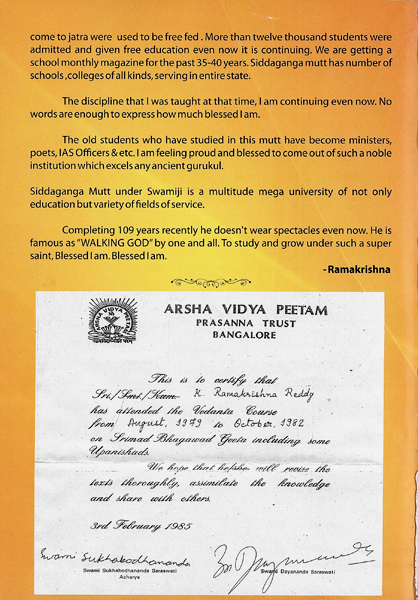 come to jatra were used to be free fed . More than twelve thousand students were
admitted and given free education even now it is continuing. We are getting a
school monthly magazine for the past 35-40 years. Siddaganga mutt has number of
schools ,colleges of all kinds, serving in entire state.
The discipline that I was taught at that time, I am continuing even now. No
words are enough to express how much blessed I am.
The old students who have studied in this mutt have become ministers,
poets, IAS Officers & etc. I am feeling proud and blessed to come out of such a noble
institution which excels any ancient gurukul.
Siddaganga Mutt under Swamiji is a multitude mega university of not only
education but variety of fields of service.
Completing 109 years recently he doesn't wear spectacles even now. He is
famous as "WALKING GOD" by one and all. To study and grow under such a super
saint, Blessed I am. Blessed I am.
- Ramakrishna
ARSHA VIDYA PEETAM
ARSHA VIDYA PEETAM
PRASANNA TRUST
BANGALORE
This is to certify that
Sri./Smt./Kum. K. Ramakrishna Reddy
has attended the Vedanta Course
from August, 1979 to October, 1982
on Srimad Bhagawad Geeta including some
Upanishads.
We hope that he/she will revise the
texts thoroughly, assimilate the knowledge
and share with others.
3rd February 1985
Swami Sukhabodhananda
Swami Sukhabodhananda Saraswati
Acharya
Swami Dayananda Saraswati